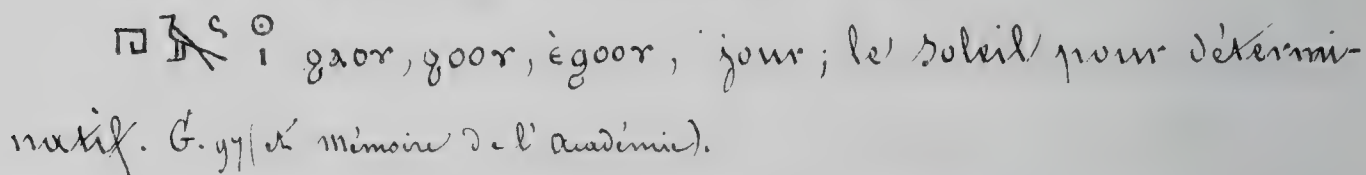 𓉔 𓏲 𓇳𓏤 ϩⲁⲟⲩ, ϩⲟⲟⲩ, ⲉ̀ϩⲟⲟⲩ, jour; le soleil pour détermi-
natif. G. 97 (et mémoire de l'académie).